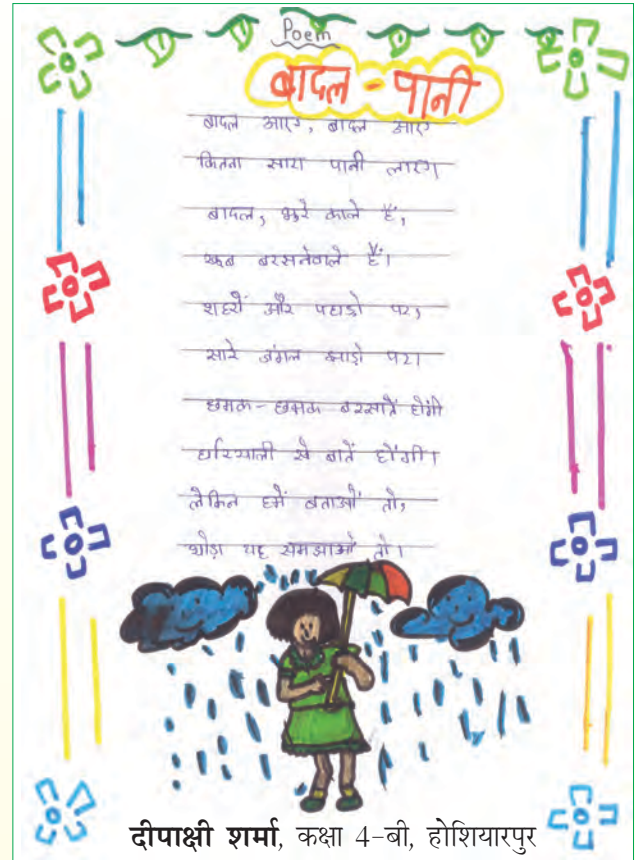 Poem
बादल - पानी
बादल आए, बादल आए
कितना सारा पानी लाए।
बादल, भुरे काले हैं,
खूब बरसनेवाले हैं।
शहरों और पहाड़ो पर,
सारे जंगल झाड़ो पर।
छमक-छमक बरसातें होंगी
हरियाली से बातें होंगी।
लेकिन हमें बताओं तो,
थोड़ा यह समझाओं तो।
दीपाक्षी शर्मा, कक्षा 4-बी, होशियारपुर